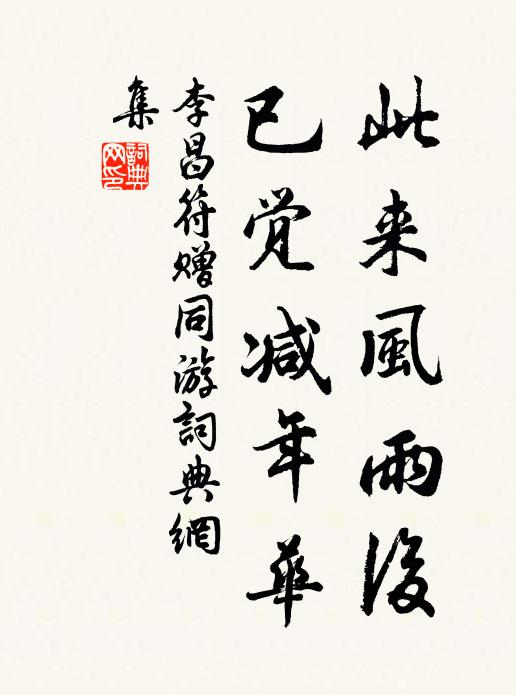 此来風雨後
已觉减年華
李昌符赠同游詞典網
集
詞典
网印